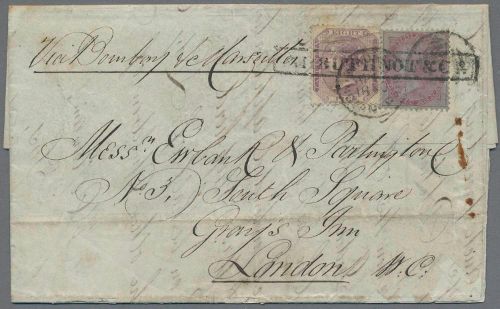 Via Bombay & Marseilles
NOT & Co
Messrs Ewbank & Partington
No 3, South Square
Gray's Inn
London W.C.